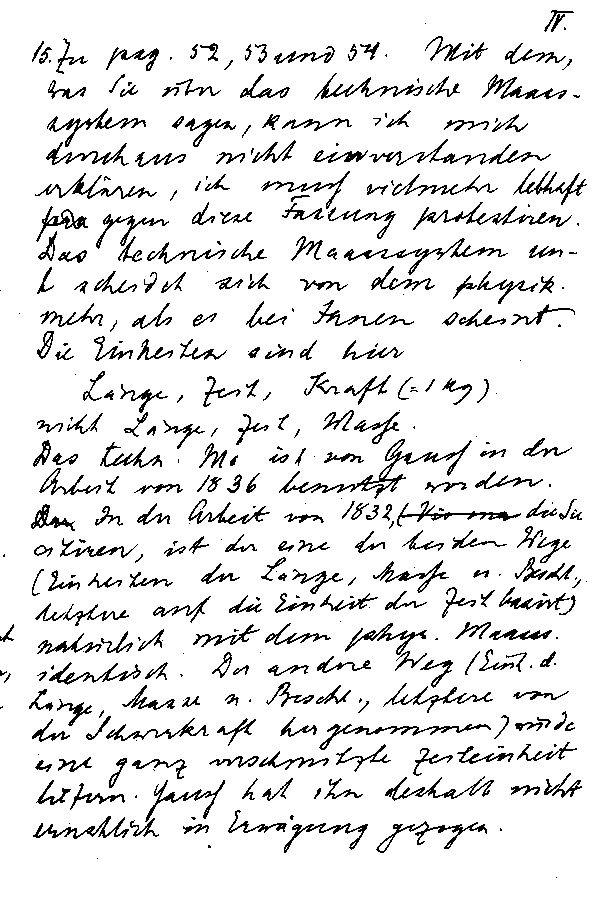 IV.
15. Zu pag. 52, 53 und 54. Mit dem,
was Sie über das technische Maass-
system sagen, kann ich mich
durchaus nicht einverstanden
erklären, ich muss vielmehr lebhaft
gegen diese Fassung protestiren.
Das technische Maasssystem un-
t scheidet sich von dem physik.
mehr, als es bei Ihnen scheint.
Die Einheiten sind hier
Länge, Zeit, Kraft (= 1 Kg)
nicht Länge, Zeit, Masse.
Das techn. Ms ist von Gauss in der
Arbeit von 1836 benutzt worden.
In der Arbeit von 1832, die Sie
citiren, ist der eine der beiden Wege
(Einheiten der Länge, Masse u. Beschl.,
letztere auf die Einheit der Zeit basirt)
natürlich mit dem phys. Maass.
identisch. Der andere Weg (Einh. d.
Länge, Masse u. Beschl., letztere von
der Schwerkraft hergenommen) würde
eine ganz verschmitzte Zeiteinheit
liefern. Gauss hat ihn deshalb nicht
ernstlich in Erwägung gezogen.